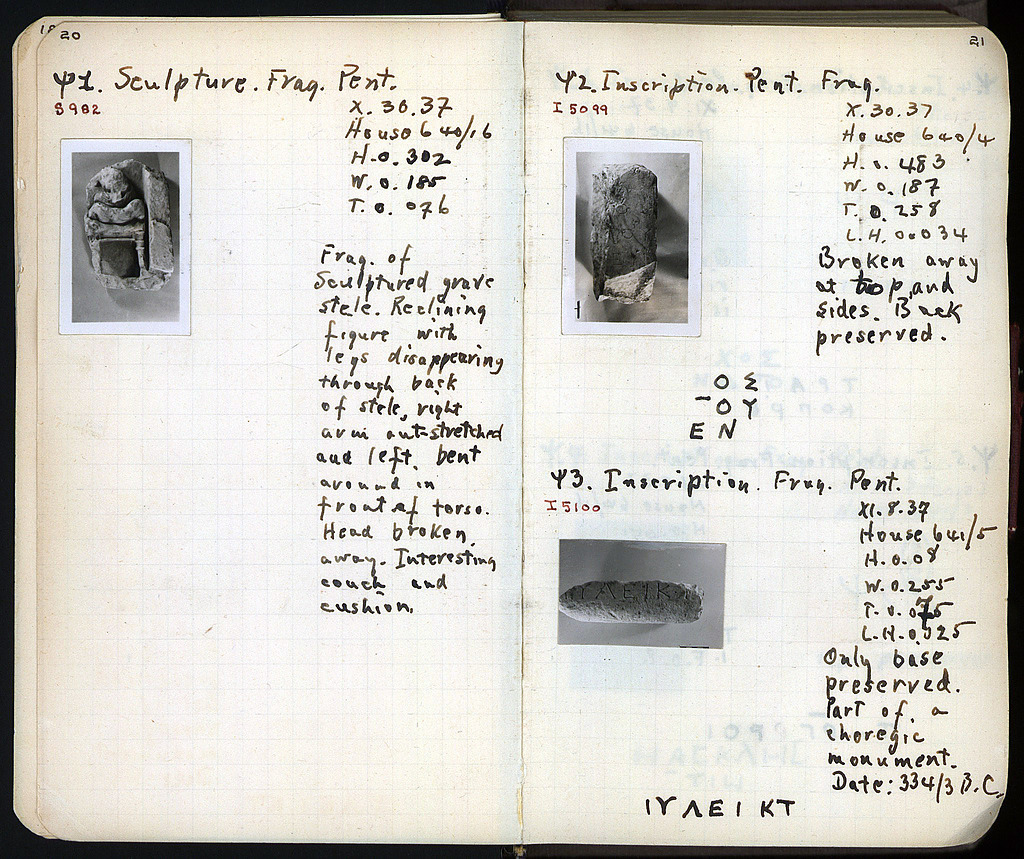 20
Ψ1. Sculpture. Frag. Pent.
S 982
X. 30.37
House 640/16
H. 0. 302
W. 0. 185
T. 0. 076
Frag. of
Sculptured grave
stele. Reclining
figure with
legs disappearing
through back
of stele, right
arm out-stretched
and left, bent
around in
front of torso.
Head broken
away. Interesting
couch and
cushion.
21
Ψ2. Inscription. Pent. Frag.
I 5099
X. 30.37
House 640/4
H. 0. 483
W. 0. 187
T. 0. 258
L.H. 0.034
Broken away
at top, and
sides. Back
preserved.
ΟΣ
ΟΥ
ΕΝ
Ψ3. Inscription. Frag. Pent.
I 5100
XI. 8.37
House 641/5
H. 0.08
W. 0.255
T. 0.075
L.H. 0.025
Only base
preserved.
Part of a
choregic
monument.
Date: 334/3 B.C.
ΙΥΛΕΙΚΤ